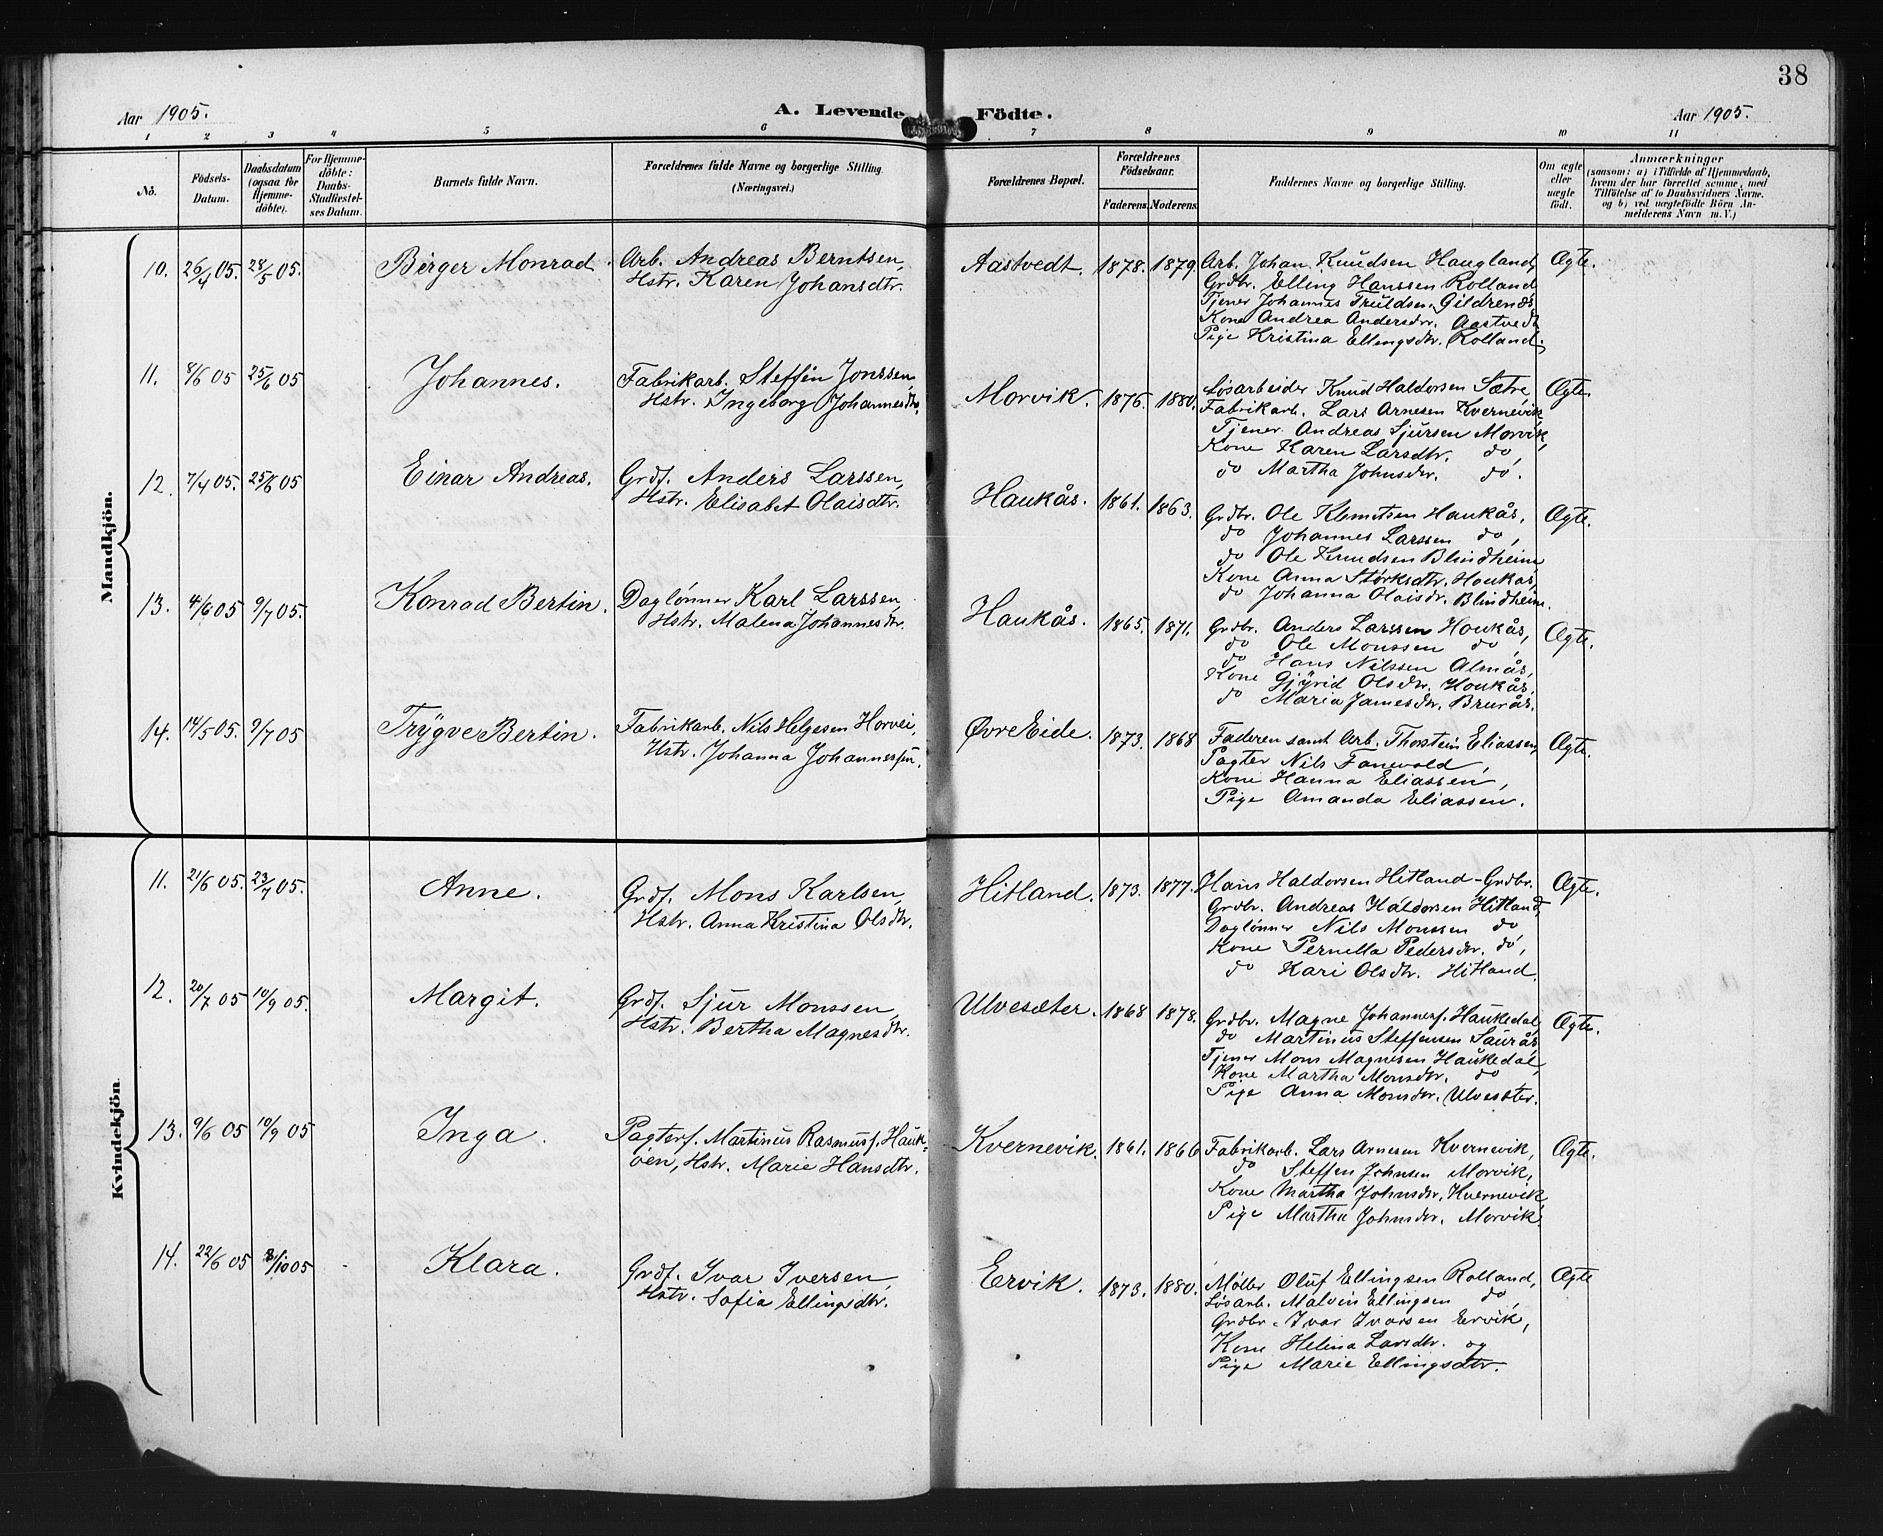 38
Aar 1905.
A. Levende Födte.
Aar 1905.
1 2 3 4 5 6 7 8 9 10 11
No.
Födsels-Datum.
Daabsdatum (ogsaa for Hjemme-döbte).
For Hjemme-döbte: Daabs-Stadfæstel-ses Datum.
Barnets fulde Navn.
Forældrenes fulde Navne og borgerlige Stilling
(Næringsvei.)
Forældrenes Bopæl.
Forældrenes Födselsaar.
Faderens. Moderens.
Faddernes Navne og borgerlige Stilling.
Om ægte eller uægte födt.
Anmærkninger
(saasom: a) i Tilfælde af Hjemmedaab,
hvem der har forrettet samme, med
Tilföielse af to Daabsvidners Navne.
og b) ved uægtefödte Börn An-
melderens Navn m. V.)
Mandkjön.
10. 26/4 05. 28/5 05. Birger Monrad. Arb. Andreas Berntsen,
Hstr. Karen Johansdtr.
Aastvedt. 1878. 1879. Arb. Johan Knudsen Haugland, Ægte.
Grdbr. Elling Hanssen Rolland
Tjener Johannes Truldsen, Gildrenæs
Kone Andrea Andersdtr. Aastvedt
Pige Kristina Ellingsdtr. Rolland.
11. 8/6 05 25/6 05 Johannes. Fabrikarb. Steffen Jonssen,
Hstr. Ingeborg Johannesdtr.
Morvik. 1876. 1880. Løsarbeider Knud Haldorsen Sætre, Ægte.
Fabrikarb. Lars Arnesen Kvernevik,
Tjener Andreas Sjursen Morvik,
Kone Karen Larsdtr. do,
do Martha Johnsdtr. do.
12. 7/4 05. 25/6 05 Einar Andreas. Grdf. Anders Larssen,
Hstr. Elisabet Olaisdtr.
Haukås. 1861. 1863. Grdbr. Ole Klemetsen Haukås, Ægte.
do Johannes Larssen do,
do Ole Knudsen Blindheim
Kone Anna Størksdtr. Haukås,
do Johanna Olaisdr. Blindheim.
13. 4/6 05 9/7 05. Konrad Bertin. Daglønner Karl Larssen,
Hstr. Malena Johannesdtr.
Haukås. 1865. 1871. Grdbr. Anders Larssen Houkås, Ægte.
do Ole Monssen do,
do Hans Nilssen Almås,
Kone Gjyrid Olsdtr. Houkås,
do Maria Jamesdtr. Brurås.
14. 14/5 05. 9/7 05 Trygve Bertin. Fabrikarb. Nils Helgesen Horvei,
Hstr. Johanna Johannesfsn.
Øvre Eide. 1873. 1868 Faderen samt Arb. Thorstein Eliassen, Ægte.
Pagter Nils Fanevold,
Kone Hanna Eliassen,
Pige Amanda Eliassen.
Kvindekjön.
11. 21/6 05. 23/7 05. Anne. Grdf. Mons Karlsen,
Hstr. Anna Kristina Olsdtr.
Hitland. 1873. 1877. Hans Haldorsen Hitland - Grdbr. Ægte.
Grdbr. Andreas Haldorsen Hitland,
Daglønner Nils Monssen do,
Kone Pernella Pedersdtr. do,
do Kari Olsdtr. Hitland
12. 20/7 05 10/9 05. Margit. Grdf. Sjur Monssen,
Hstr. Bertha Magnesdtr.
Ulvesæter. 1868 1878. Grdbr. Magne Johannesf. Haukedal, Ægte.
do Martinus Steffensen Saurås
Tjener Mons Magnesen Haukedal,
Kone Martha Monsdtr. do
Pige Anna Monsdtr. Ulvesæter.
13. 9/6 05 10/9 05 Inga. Pagterf. Martinus Rasmusf. Hauk-
øen, Hstr. Marie Hansdtr.
Kvernevik. 1861. 1866 Fabrikarb. Lars Arnesen Kvernevik, Ægte.
do Steffen Johnsen Morvik,
Kone Martha Johnsdtr. Kvernevik,
Pige Martha Johnsdtr. Morvik
14. 22/6 05 8/10 05 Klara. Grdf. Ivar Iversen,
Hstr. Sofia Ellingsdtr.
Eervik. 1873. 1880. Møller Oluf Ellingsen Rolland, Ægte
Løsarb. Malvin Ellingsen do,
Grdbr. Ivar Ivarsen Ervik,
Kone Helina Larsdtr. og
Pige Marie Ellingsdtr.